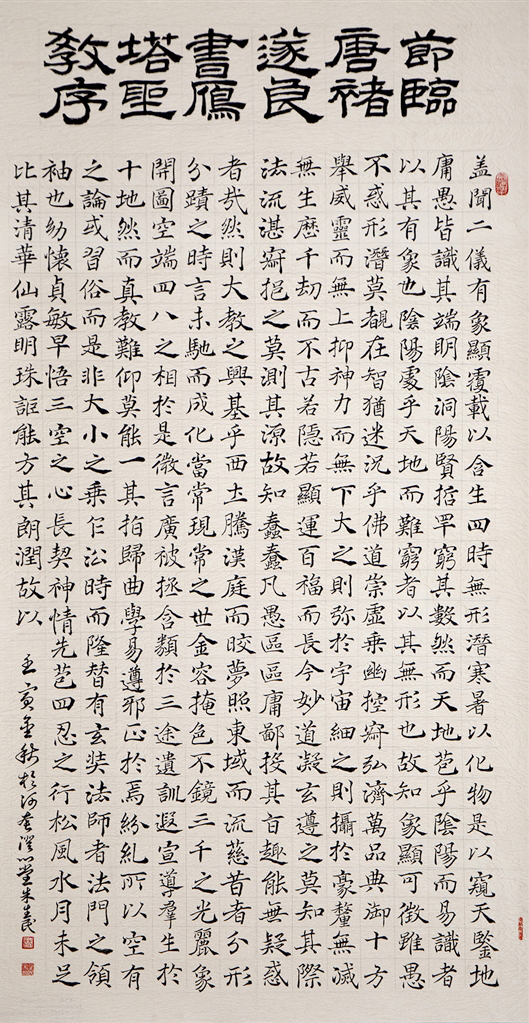 節臨
唐褚
遂良
書鴈
塔聖
教序
盖聞二儀有象顯覆載以含生四時無形潛寒暑以化物是以窺天鑒地
庸愚皆識其端明陰洞陽賢哲罕窮其數然而天地苞乎陰陽而易識者
以其有象也陰陽處乎天地而難窮者以其無形也故知象顯可徵雖愚
不惑形潛莫覩在智猶迷況乎佛道崇虛乘幽控寂弘濟萬品典御十方
舉威靈而無上抑神力而無下大之則弥於宇宙細之則攝於豪釐無滅
無生歷千劫而不古若隱若顯運百福而長今妙道凝玄遵之莫知其際
法流湛寂挹之莫測其源故知蠢蠢凡愚區區庸鄙投其旨趣能無疑惑
者哉然則大教之興基乎西土騰漢庭而皎夢照東域而流慈昔者分形
分蹟之時言未馳而成化當常現常之世金容掩色不鏡三千之光麗象
開圖空端四八之相於是微言廣被拯含類於三途遺訓遐宣導羣生於
十地然而真教難仰莫能一其指歸曲學易遵邪正於焉紛糺所以空有
之論或習俗而是非大小之乘乍沿時而隆替有玄奘法師者法門之領
袖也幼懷貞敏早悟三空之心長契神情先苞四忍之行松風水月未足
比其清華仙露明珠詎能方其朗潤故以
壬寅金秋於河套澄心堂朱